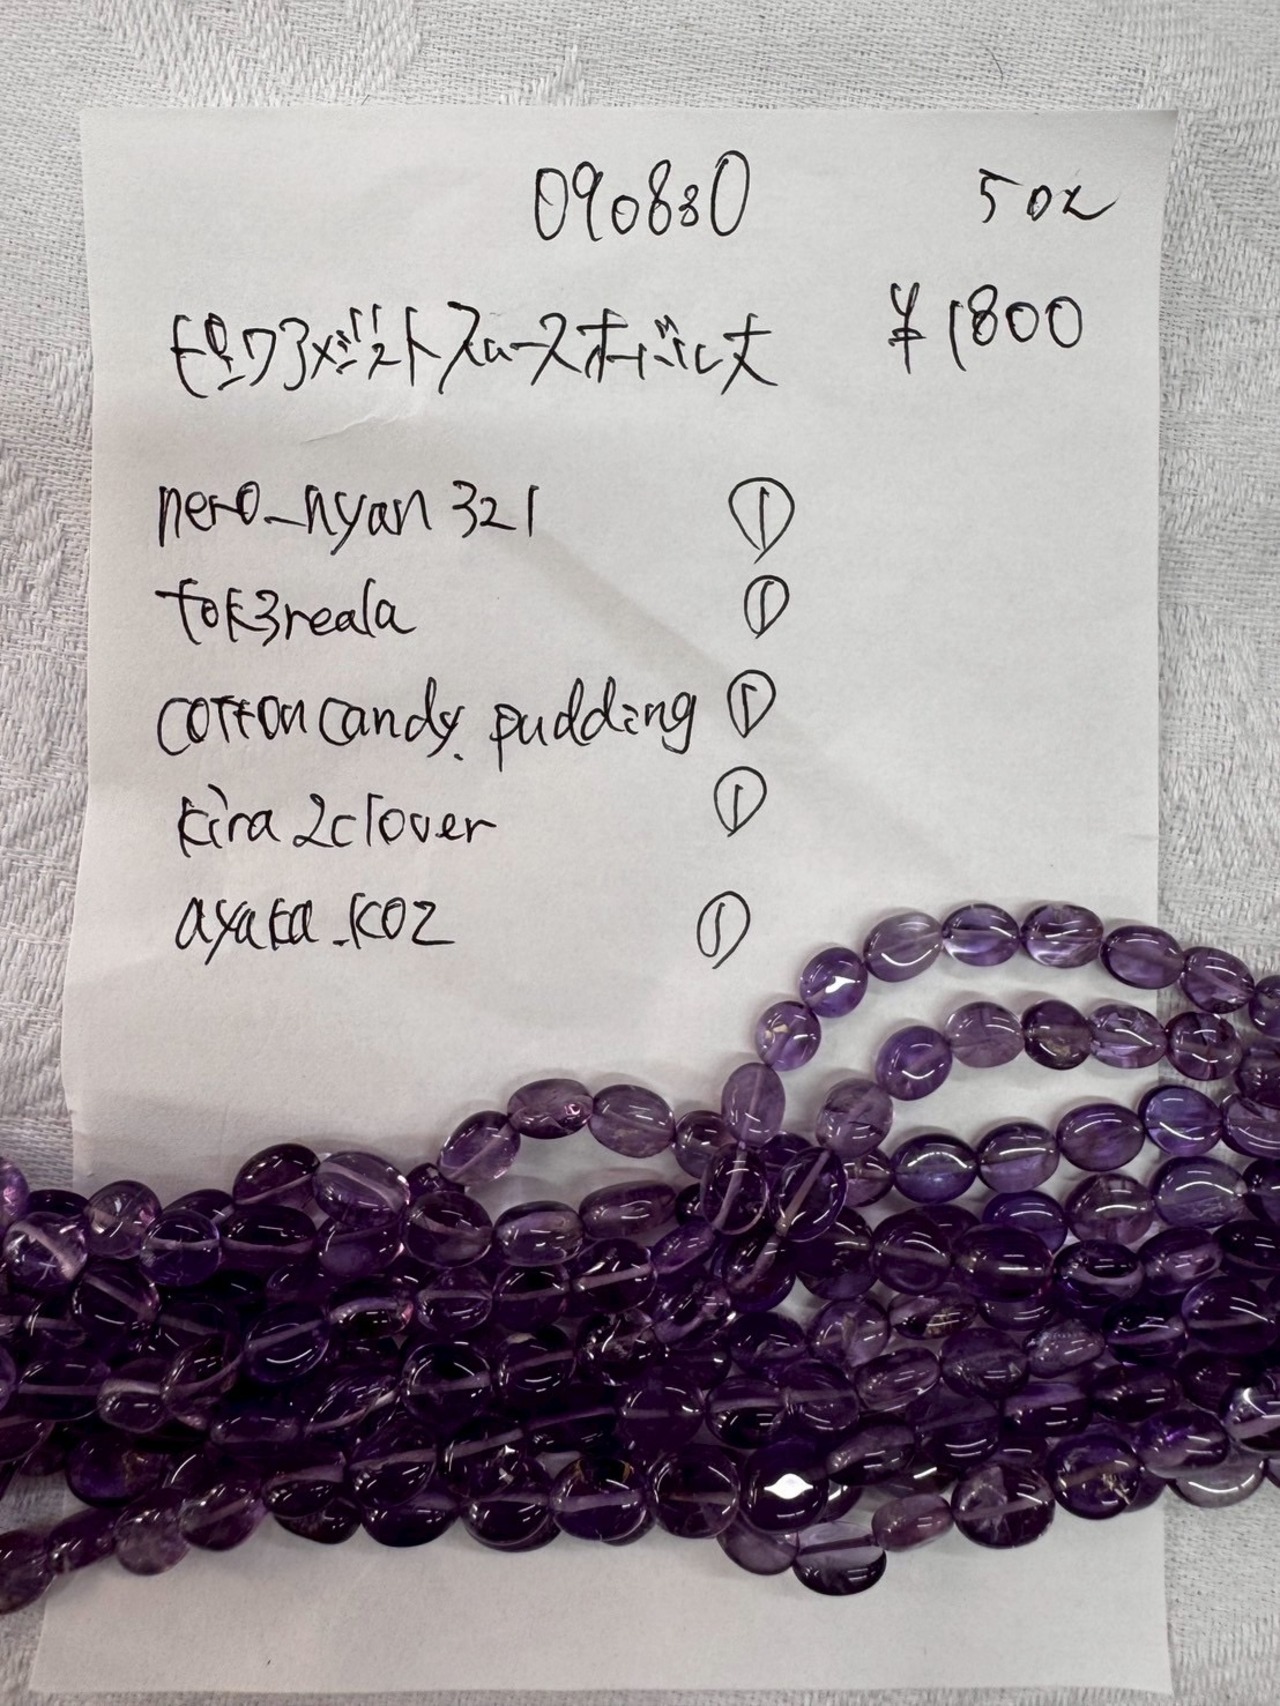 090830 5oz
ピンクアメジストスムースオーバル大 ¥1800
nero_nyan321 ①
tok3reala ①
cottoncandy.pudding ①
kira2clover ①
ayaka.k02 ①